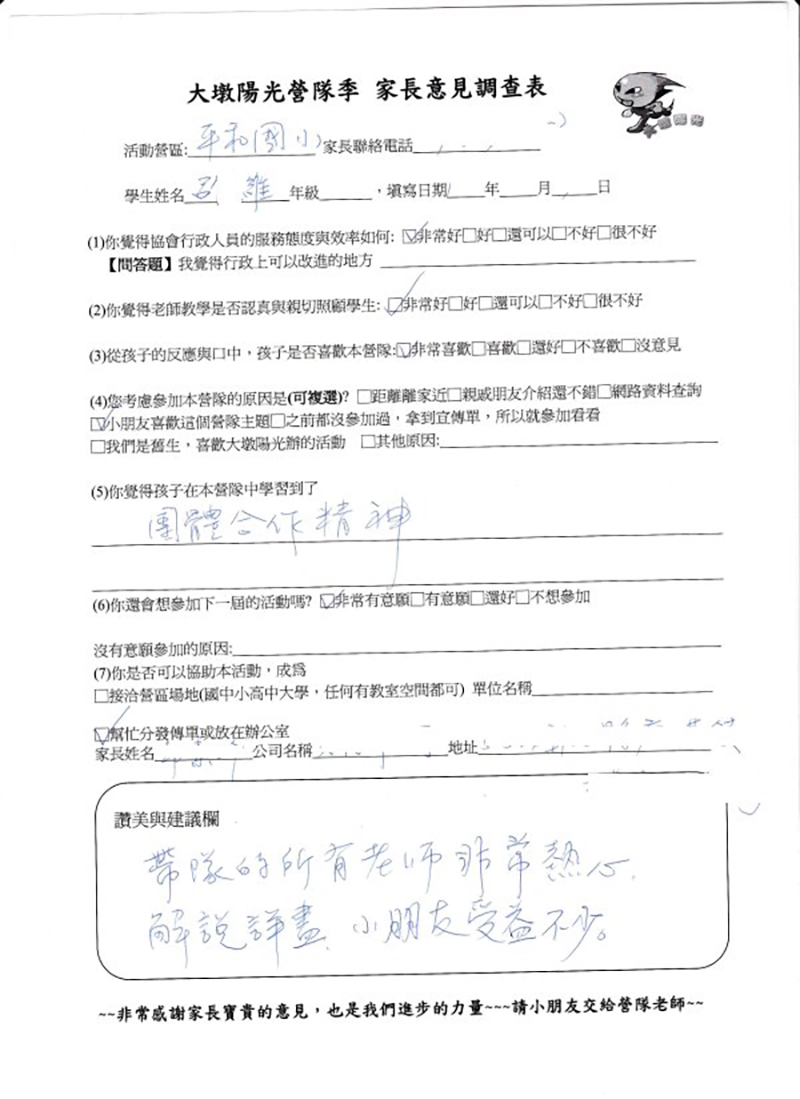 大墩陽光營隊季 家長意見調查表
活動營區:平和國小 家長聯絡電話
學生姓名 年級 ,填寫日期 年 月 日
(1)你覺得協會行政人員的服務態度與效率如何: ☑非常好□好□還可以□不好□很不好
【問答題】我覺得行政上可以改進的地方
(2)你覺得老師教學是否認真與親切照顧學生: ☑非常好□好□還可以□不好□很不好
(3)從孩子的反應與口中,孩子是否喜歡本營隊:☑非常喜歡□喜歡□還好□不喜歡□沒意見
(4)您考慮參加本營隊的原因是(可複選)? □距離離家近□親戚朋友介紹還不錯□網路資料查詢
☑小朋友喜歡這個營隊主題□之前都沒參加過,拿到宣傳單,所以就參加看看
□我們是舊生,喜歡大墩陽光辦的活動 □其他原因:
(5)你覺得孩子在本營隊中學習到了
團體合作精神
(6)你還會想參加下一屆的活動嗎? ☑非常有意願□有意願□還好□不想參加
沒有意願參加的原因:
(7)你是否可以協助本活動,成為
□接洽營區場地(國中小高中大學,任何有教室空間都可) 單位名稱
☑幫忙分發傳單或放在辦公室
家長姓名 公司名稱 地址
讚美與建議欄
帶隊的所有老師非常熱心,
解說詳盡,小朋友受益不少。
~~非常感謝家長寶貴的意見,也是我們進步的力量~~~請小朋友交給營隊老師~~